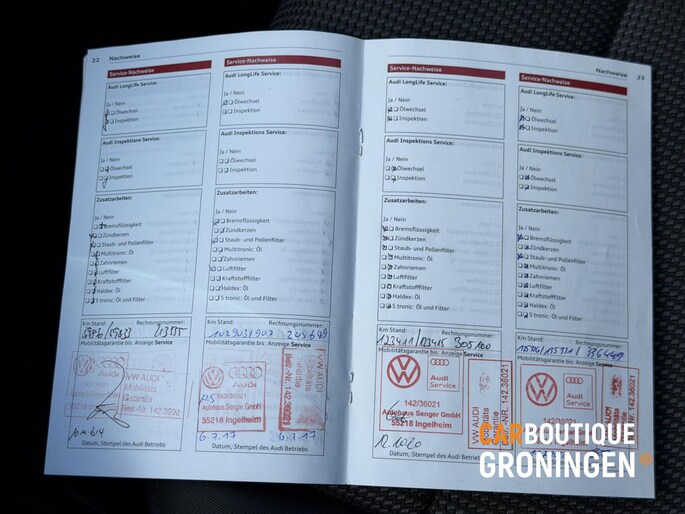 22 Nachweise
Service-Nachweise
Audi LongLife Service:
Ja / Nein
Ölwechsel
Inspektion
Audi Inspektions Service:
Ja / Nein
Ölwechsel
Inspektion
Zusatzarbeiten:
Ja / Nein
Bremsflüssigkeit
Zündkerzen
Staub- und Pollenfilter
Multitronic: Öl
Zahnriemen
Luftfilter
Kraftstofffilter
Haldex: Öl
S tronic: Öl und Filter
Km Stand: Rechnungsnummer:
Mobilitätsgarantie bis: Anzeige Service
Audi
VW AUDI
Mobilitäts
Garantie
Datum, Stempel des Audi Betriebs
Service-Nachweise
Audi LongLife Service:
Ja / Nein
Ölwechsel
Inspektion
Audi Inspektions Service:
Ja / Nein
Ölwechsel
Inspektion
Zusatzarbeiten:
Ja / Nein
Bremsflüssigkeit
Zündkerzen
Staub- und Pollenfilter
Multitronic: Öl
Zahnriemen
Luftfilter
Kraftstofffilter
Haldex: Öl
S tronic: Öl und Filter
Km Stand: Rechnungsnummer:
Mobilitätsgarantie bis: Anzeige Service
Audi
142/36021
Autohaus Senger GmbH
55218 Ingelheim
VW AUDI
6.7.17 6.7.17
Datum, Stempel des Audi Betriebs
Service-Nachweise
Audi LongLife Service:
Ja / Nein
Ölwechsel
Inspektion
Audi Inspektions Service:
Ja / Nein
Ölwechsel
Inspektion
Zusatzarbeiten:
Ja / Nein
Bremsflüssigkeit
Zündkerzen
Staub- und Pollenfilter
Multitronic: Öl
Zahnriemen
Luftfilter
Kraftstofffilter
Haldex: Öl
S tronic: Öl und Filter
Km Stand: Rechnungsnummer:
Mobilitätsgarantie bis: Anzeige Service
Audi
Service
142/36021
Autohaus Senger GmbH
55218 Ingelheim
VW AUDI
Datum, Stempel des Audi Betriebs
Nachweise 23
Service-Nachweise
Audi LongLife Service:
Ja / Nein
Ölwechsel
Inspektion
Audi Inspektions Service:
Ja / Nein
Ölwechsel
Inspektion
Zusatzarbeiten:
Ja / Nein
Bremsflüssigkeit
Zündkerzen
Staub- und Pollenfilter
Multitronic: Öl
Zahnriemen
Luftfilter
Kraftstofffilter
Haldex: Öl
S tronic: Öl und Filter
Km Stand: Rechnungsnummer:
Mobilitätsgarantie bis: Anzeige Service
Audi
Service
142/36021
Autohaus Senger GmbH
CARBOUTIQUE
GRONINGEN